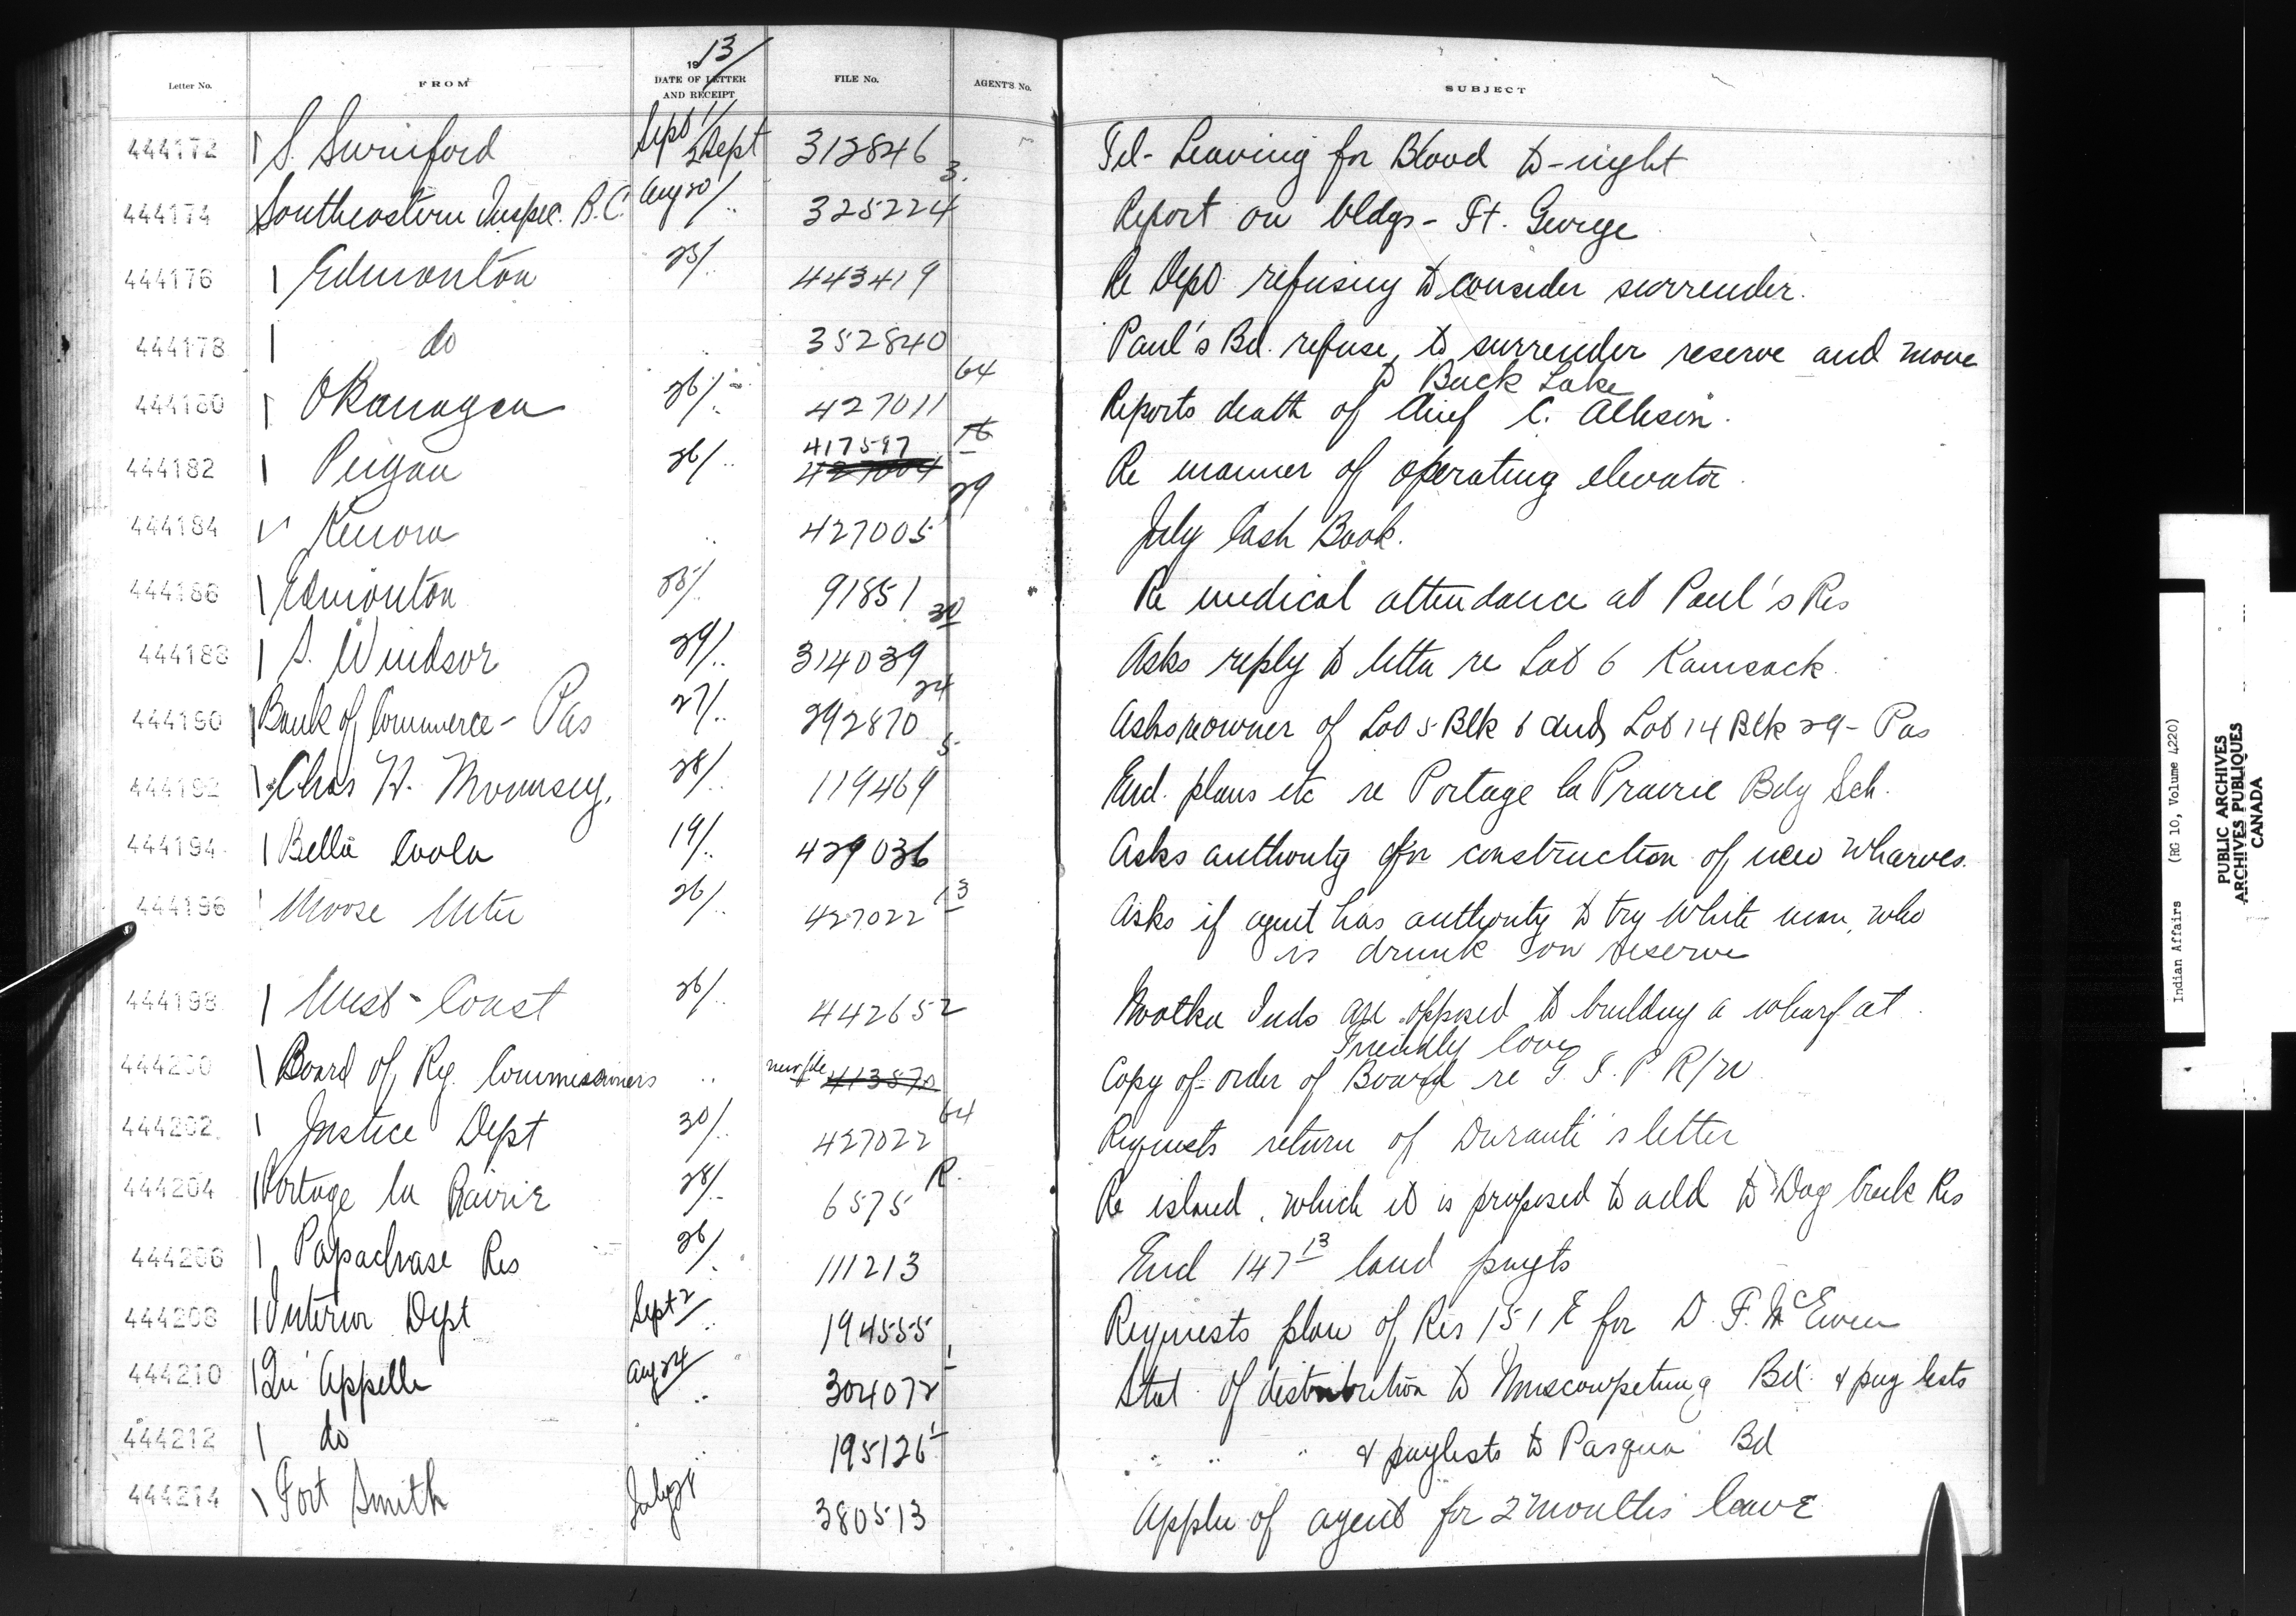 Letter No. FROM 1913/ DATE OF LETTER AND RECEIPT FILE No. AGENT'S No. SUBJECT
444172 S. Swinford Sept 1/ 2 Sept 312846 Tel- Leaving for Blood to-night
444174 Southeastern Inspec. B.C. Aug 20/ .. 325224 3. Report on bldgs - Ft. George
444176 Edmonton 25/.. 443419 Re Dept refusing to consider surrender.
444178 do 352840 Paul's Bd. refuse to surrender reserve and move
to Buck Lake
444180 Okanagan 26/.. 427011 64 Reports death of Chief C. Allison.
444182 Peigan 26/.. 417597 427004 16 Re manner of operating elevator.
444184 Kenora .. 427005 29 July Cash Book.
444186 Edmonton 25/.. 91851 Re medical attendance at Paul's Res
444188 S. Windsor 29/.. 314039 30 Asks reply to letter re Lot 6 Kamsack.
444190 Bank of Commerce - Pas 27/.. 292870 24 Asks re owner of Lot 5 Blk 6 and Lot 14 Blk 29 - Pas
444192 Chas H. 28/.. 119469 5 Encl. plans etc re Portage la Prairie Bdg Sch.
444194 Bella Coola 19/.. 429036 Asks authority for construction of new wharves.
444196 Moose Mtn 26/.. 427022 13 Asks if agent has authority to try white man, who
is drunk on reserve
444198 West-Coast 26/.. 442652 Nootka Inds are opposed to building a wharf at
Friendly Cove
444200 Board of Ry. Commissioners .. new file 413870 Copy of order of Board re G T P R/W
444202 Justice Dept 30/.. 427022 64 Requests return of letter
444204 Portage la Prairie 28/.. 6575 R. Re island, which it is proposed to add to Dog Creek Res
444206 Papachase Res 26/. 111213 Encl 147 13 land paymts
444208 Interior Dept Sept 2/.. 194555 Requests plan of Res 151 E for D. F. McEwen
444210 Qu'Appelle Aug 24 .. 304072 1 Stat. of distribution to Muscowpetung Bd. & pay lists
444212 do .. 195126 1 .. .. .. & paylists to Pasqua Bd
444214 Fort Smith July 24 380513 Appln of agent for 2 months leave
Indian Affairs (RG 10, Volume 4220)
PUBLIC ARCHIVES
ARCHIVES PUBLIQUES
CANADA